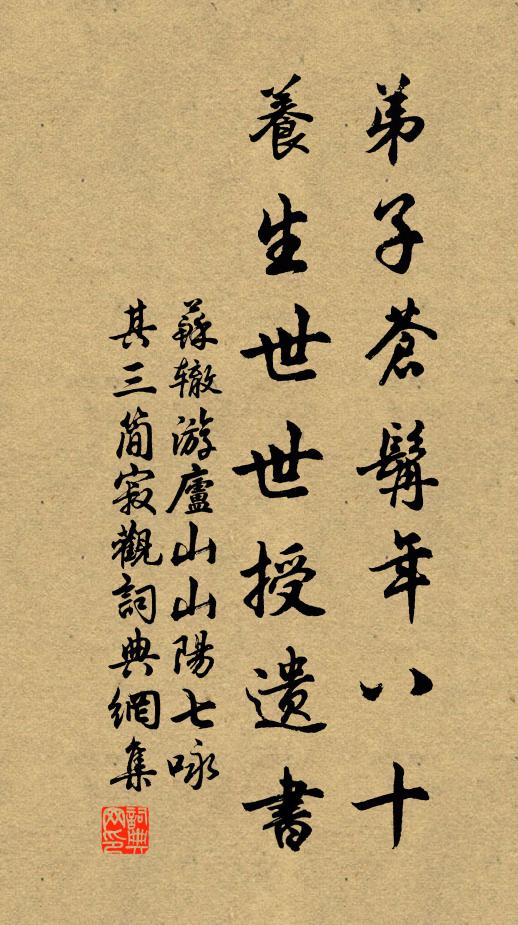 弟子苍髯年八十
養生世世授遗書
蘇辙游廬山山陽七咏
其三简寂觀詞典網集
詞典网印